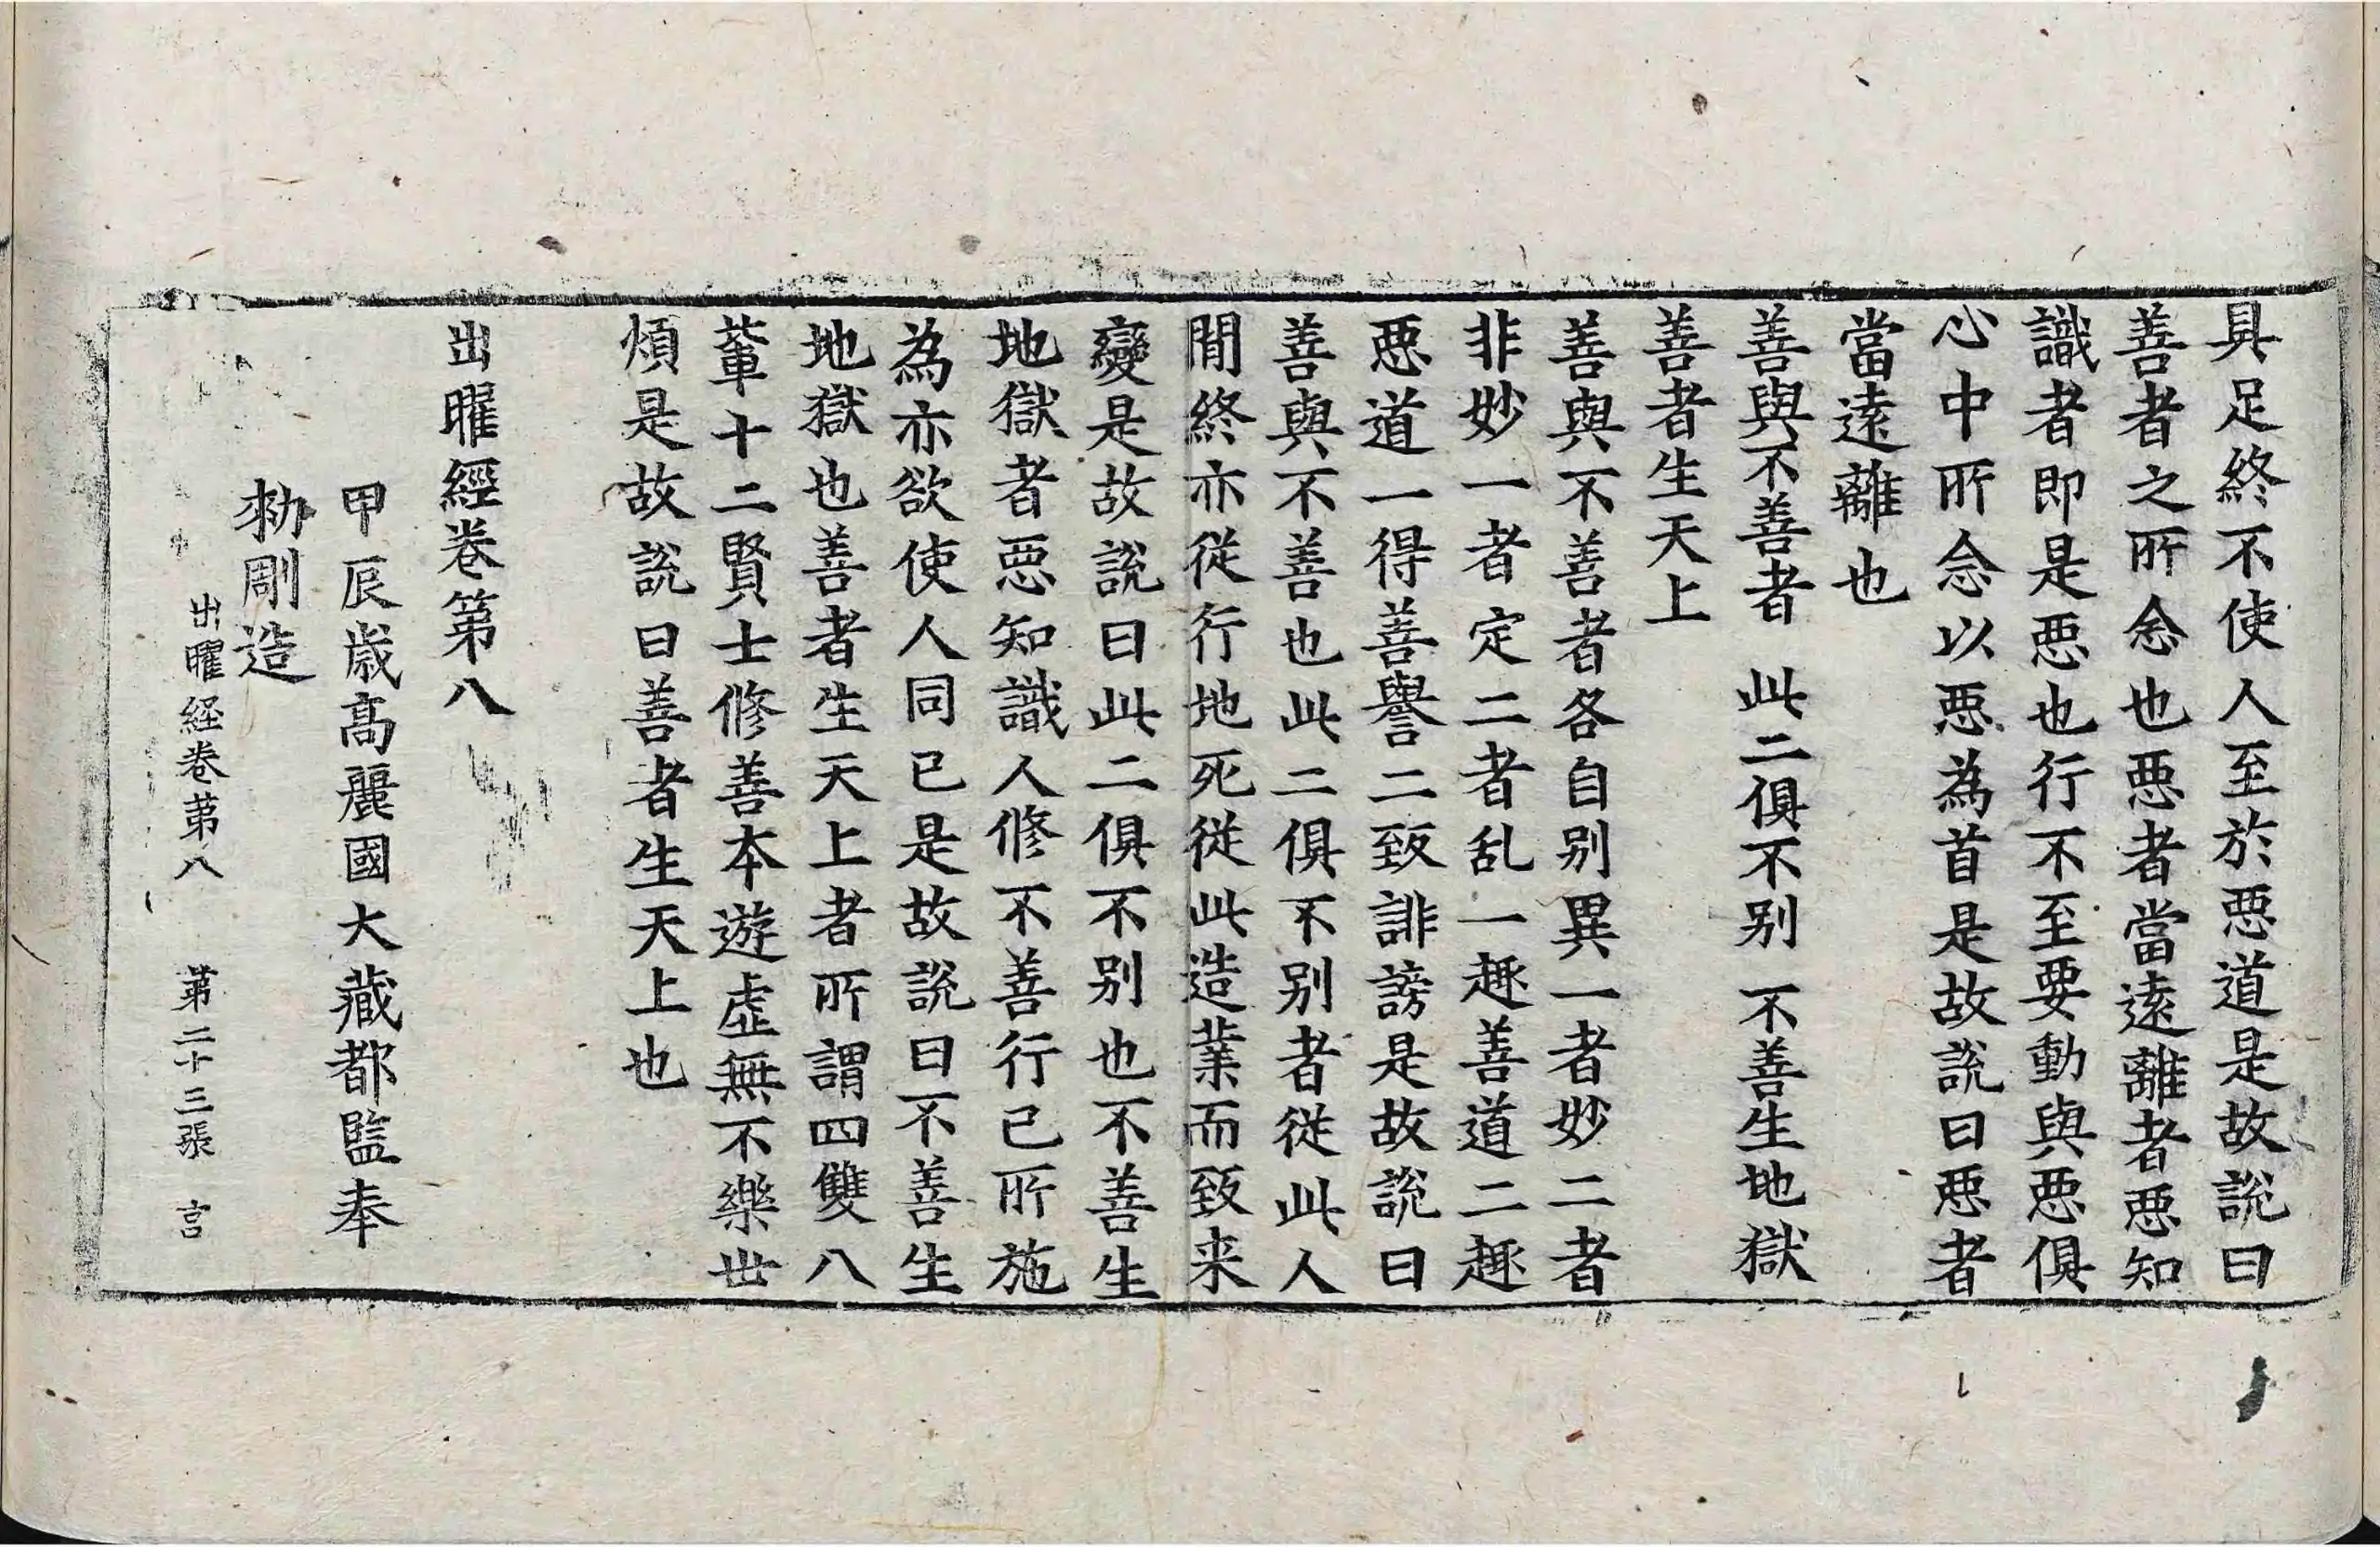 具足終不使人至於惡道是故說曰
善者之所念也惡者當遠離者惡知
識者即是惡也行不至要動與惡俱
心中所念以惡為首是故說曰惡者
當遠離也
善與不善者　此二俱不別　不善生地獄
善者生天上
善與不善者各自別異一者妙二者
非妙一者定二者乱一趣善道二趣
惡道一得善譽二致誹謗是故說曰
善與不善也此二俱不別者從此人
閒終亦從行地死從此造業而致来
變是故說曰此二俱不別也不善生
地獄者惡知識人修不善行已所施
為亦欲使人同已是故說曰不善生
地獄也善者生天上者所謂四雙八
輩十二賢士修善本遊虛無不樂世
煩是故說曰善者生天上也
出曜經卷第八
甲辰歲高麗國大藏都監奉
勑剛造
出曜経卷苐八　苐二十三張　言